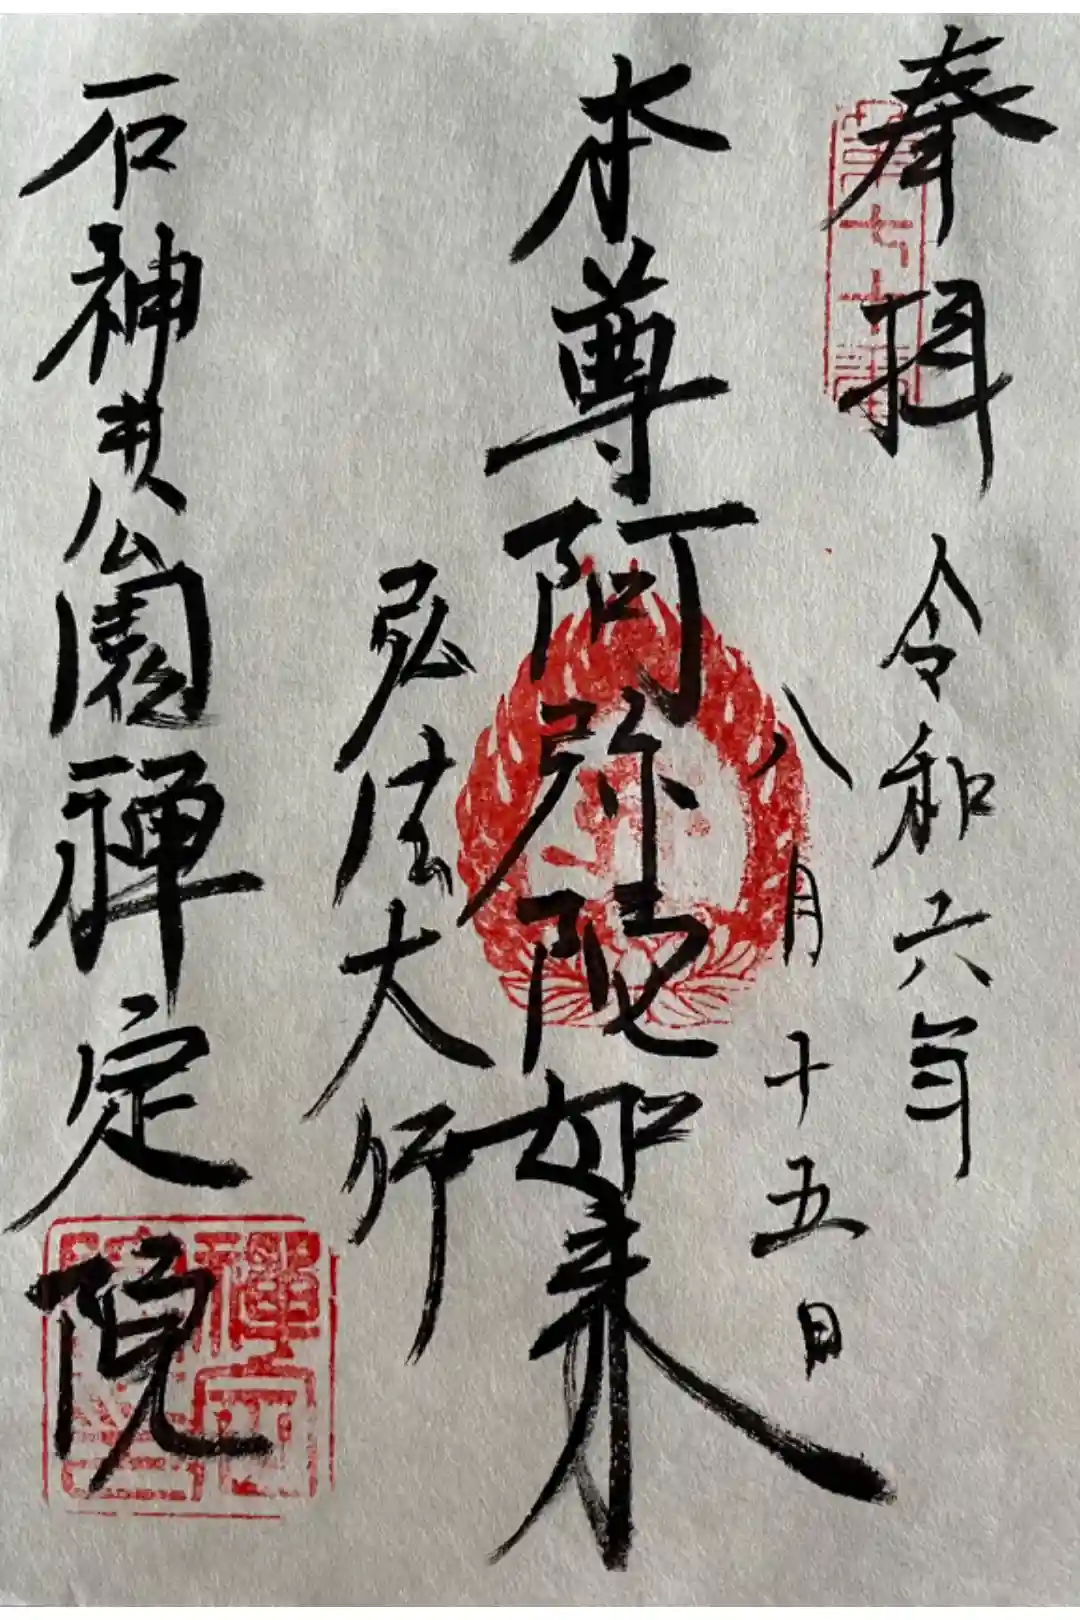 奉拝
第七十番
令和六年
八月十五日
本尊阿弥陀如来
弘法大師
石神井公園禅定院